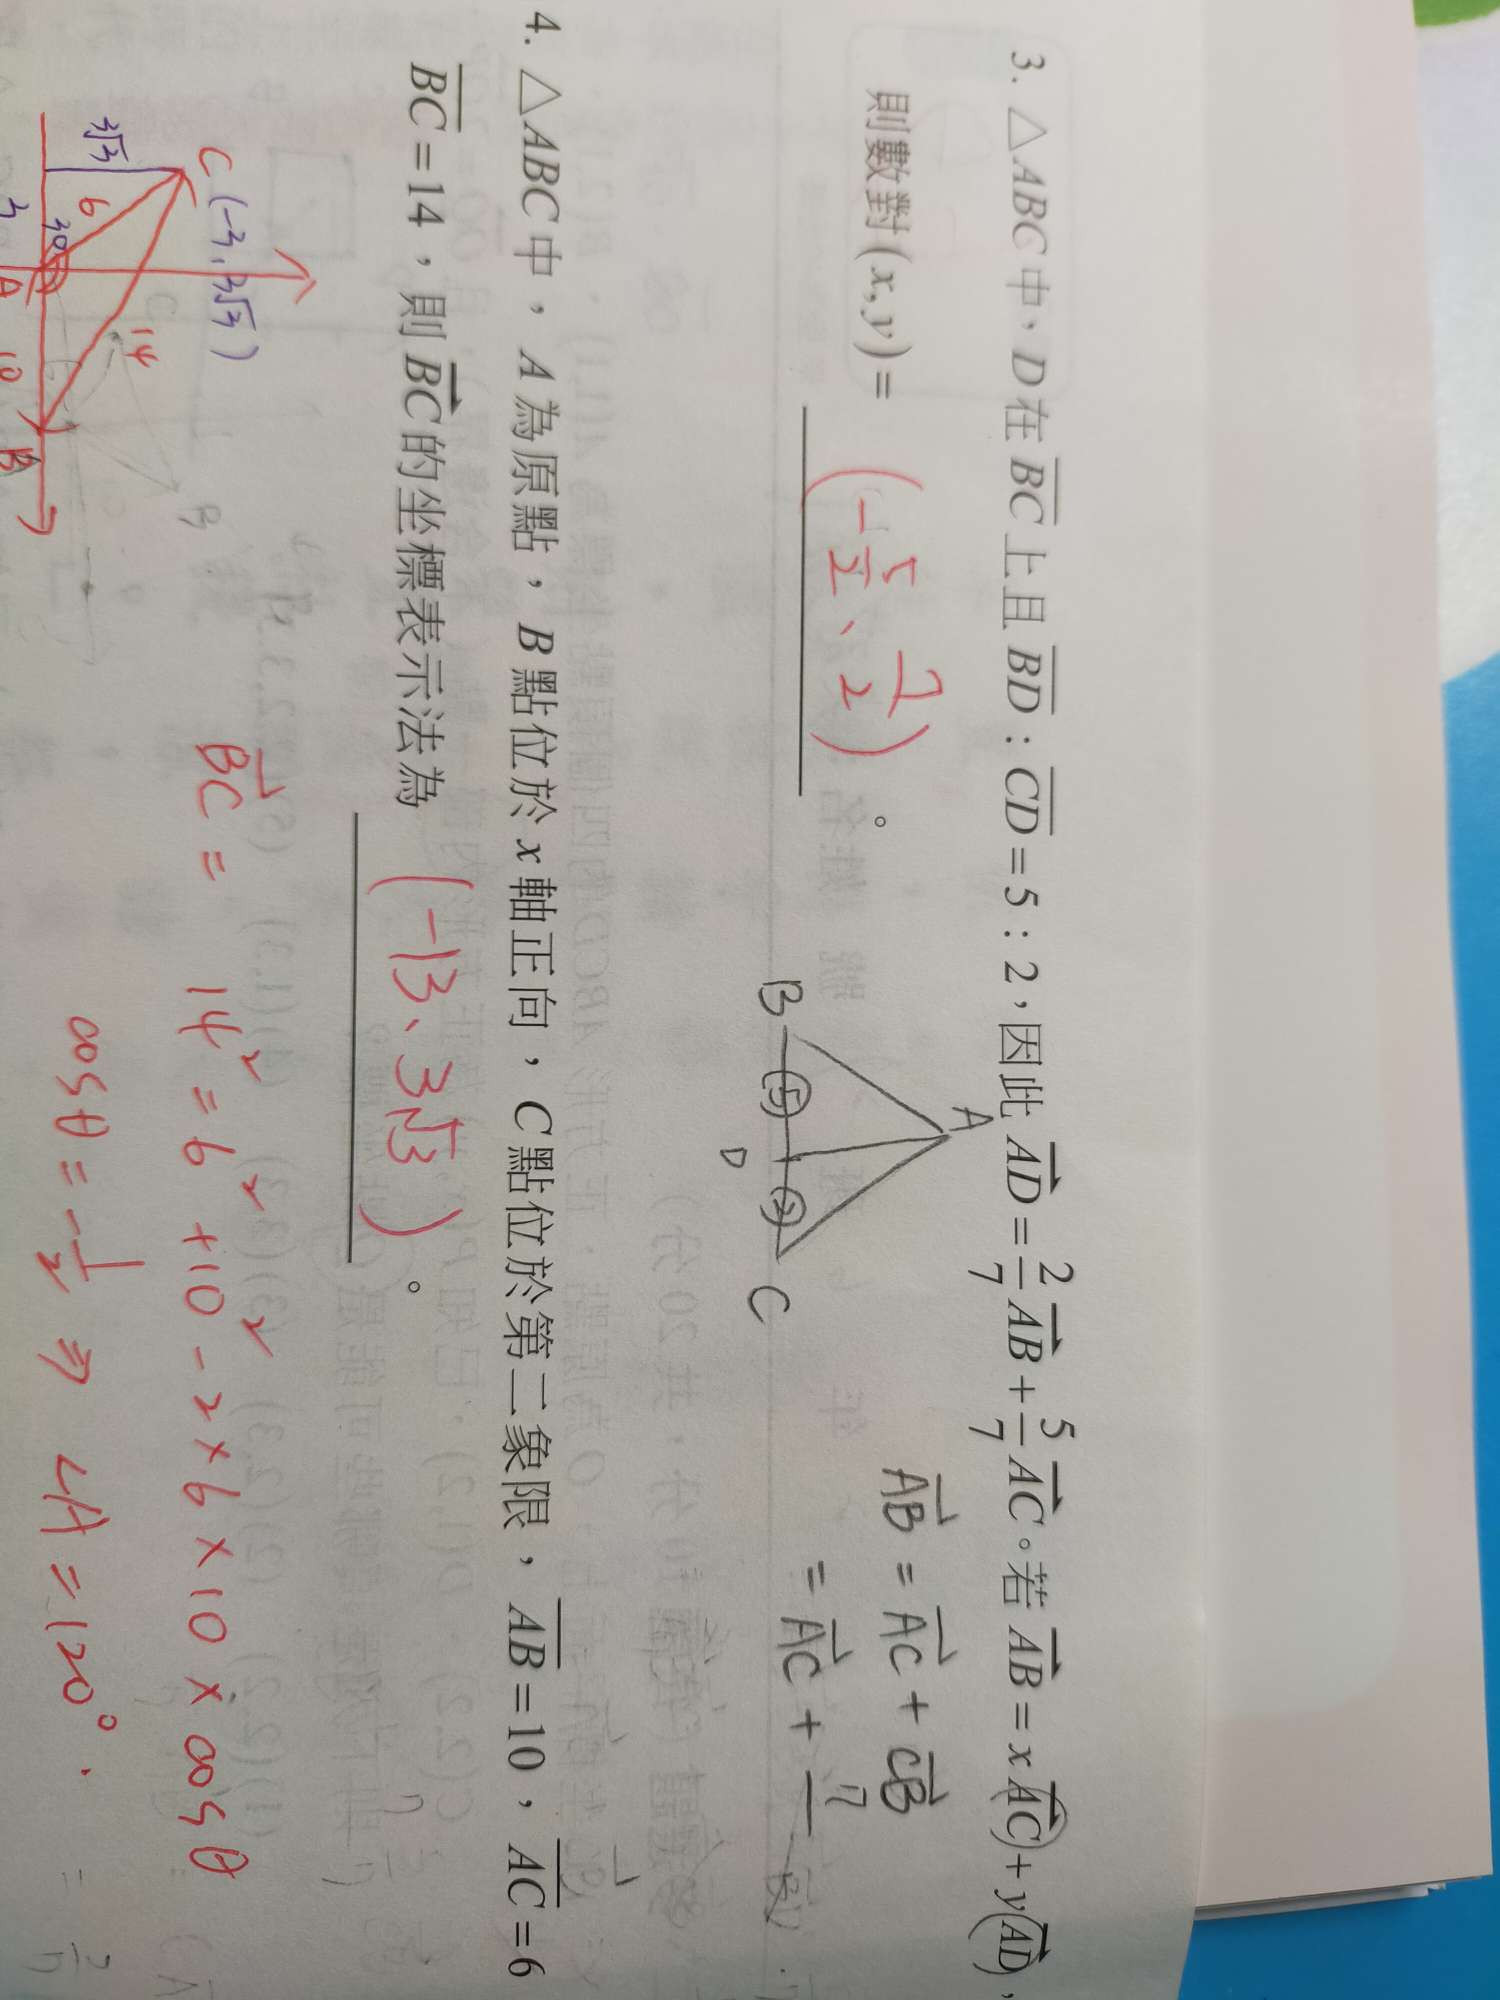 3. △ABC中，D在BC上且BD：CD=5：2，因此AD=2/7AB+5/7AC。若AB=xAC+yAD，
則數對(x,y)=(-5/2、7/2)。
A
B
5
2
D
C
AB=AC+CB
=AC+7
4. △ABC中，A為原點，B點位於x軸正向，C點位於第二象限，AB=10，AC=6
BC=14，則BC的坐標表示法為(-13、3√3)。
C(-3,3√3)
3√3
6
14
3
A
10
B
BC= 14²=6²+10²-2×6×10×cosθ
cosθ=-1/2⇒∠A=120°.